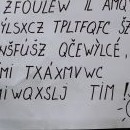 ZFOULEW IL AMQ
ÝLSXCZ TPLTFQFC Š
NŠFÚŠZ QČEWÝLCÉ,
MI TXÁXMVWC
MIWQXSLJ TÍM!